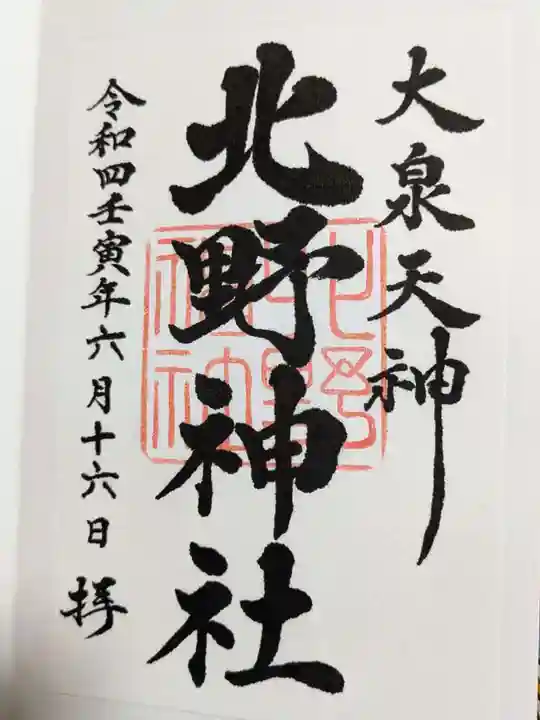 大泉天神
北野神社
令和四壬寅年六月十六日 拝
北野神社